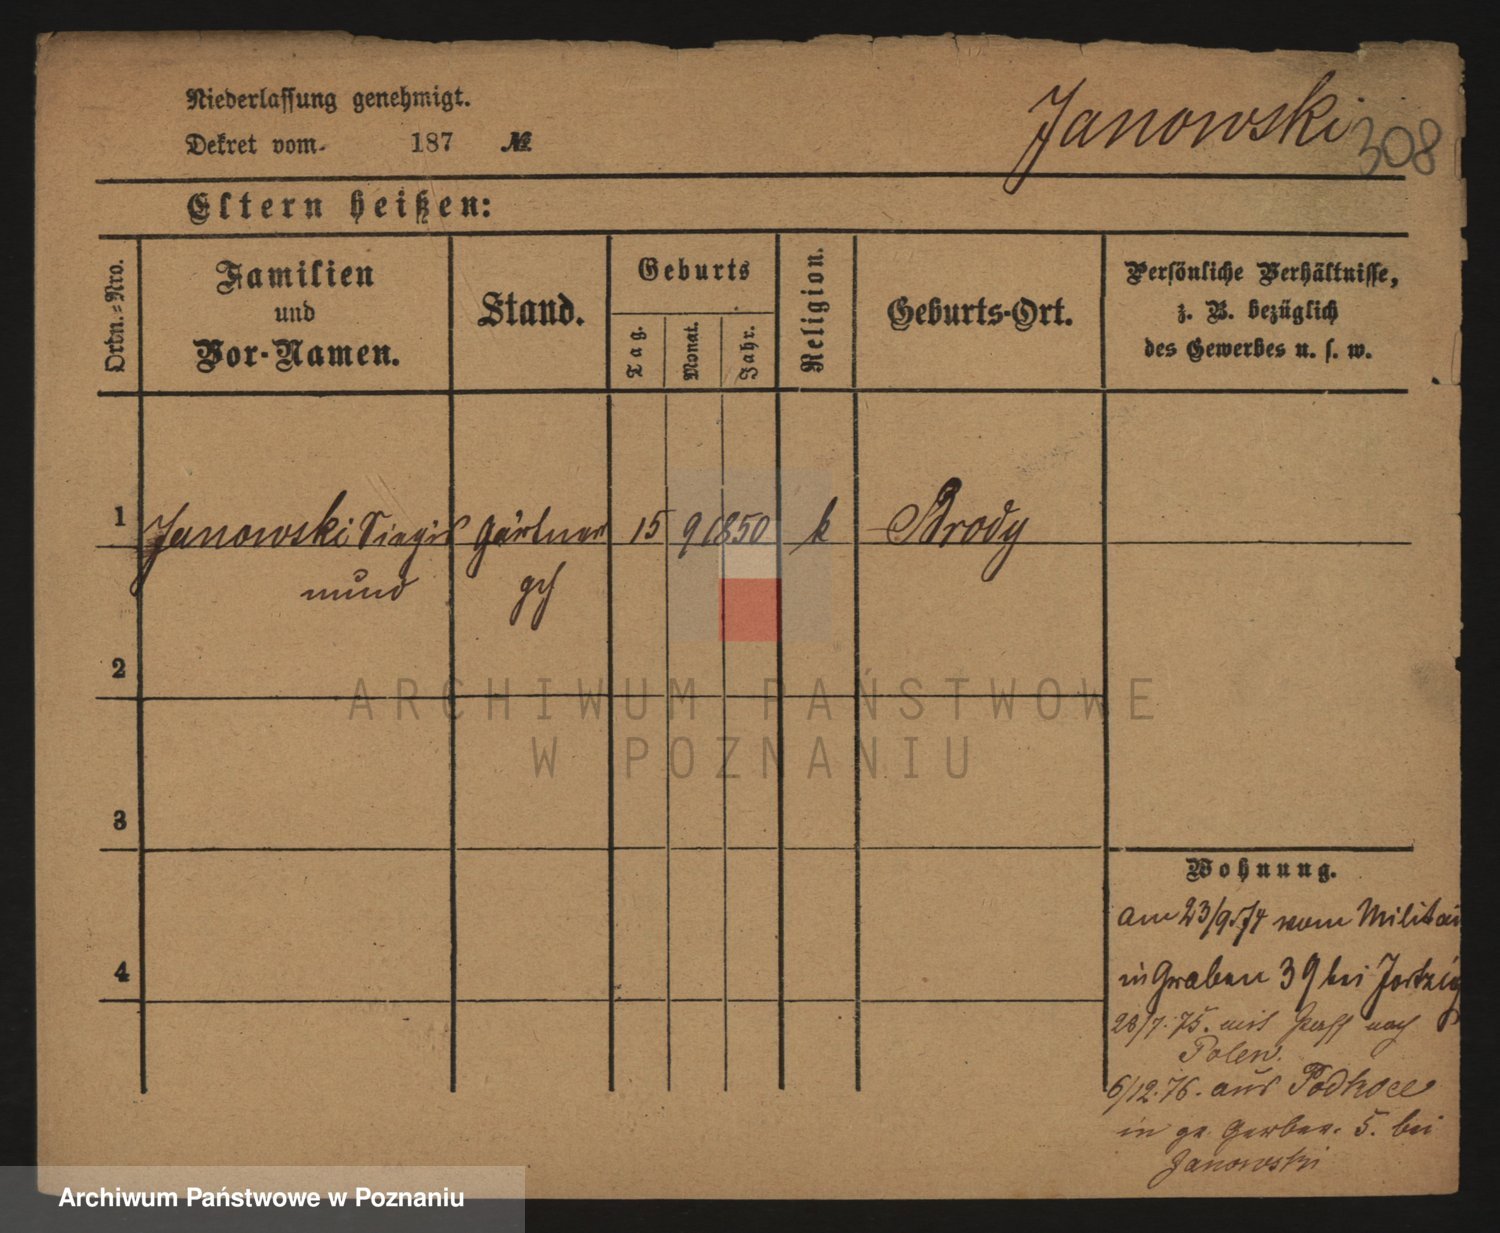 Niederlassung genehmigt.
Janowski 308
Dekret vom 187 №
Eltern heißen:
Ordn.-Nro.
Familien
und
Vor-Namen.
Stand.
Geburts
Tag.
Monat.
Jahr.
Religion.
Geburts-Ort.
Persönliche Verhältnisse,
z. B. bezüglich
des Gewerbes u. s. w.
1 Janowski Siegis Gärtner 15 9 1850 k Brody
mund
2
3
4
Wohnung.
am 23/9.74 vom Militai
in Graben 39 bei
28/7.75. mit nach
Polen.
6/12.76. aus
in gr. Gerber. 5. bei
Janowski
ARCHIWUM PAŃSTWOWE
W POZNANIU
Archiwum Państwowe w Poznaniu